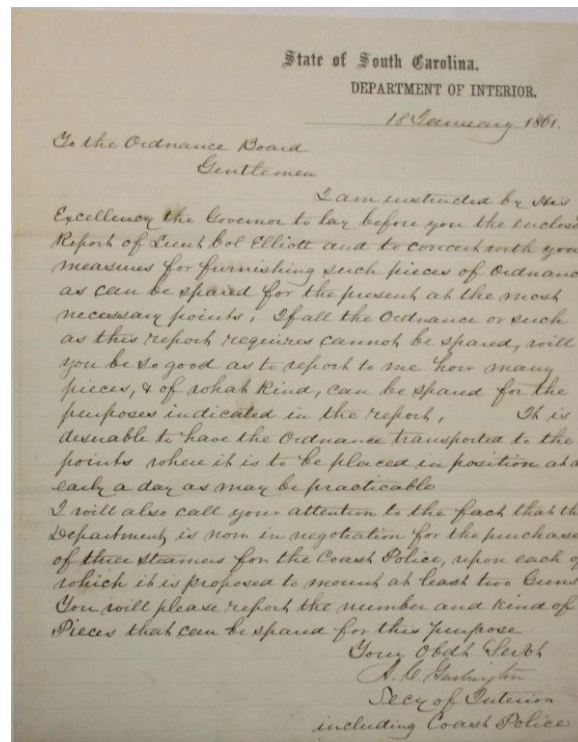 State of South Carolina.
DEPARTMENT OF INTERIOR.
18 January 1861.
To the Ordnance Board
Gentlemen
I am instructed by His
Excellency the Governor to lay before you the enclos
Report of Lieut Col Elliott and to concert with you
measures for furnishing such pieces of Ordnanc
as can be spared for the present at the most
necessary points, If all the Ordnance or such
as this report requires cannot be spared, will
you be so good as to report to me how many
pieces, & of what kind, can be spared for the
purposes indicated in the report, It is
desirable to have the Ordnance transported to the
points where it is to be placed in position at a
early a day as may be practicable
I will also call your attention to the fact that th
Department is now in negotiation for the purchase
of three steamers for the Coast Police, upon each o
which it is proposed to mount at least two Guns
You will please report the number and kind of
Pieces that can be spared for this purpose
Your Obdt Servt
A. C. Garlington
Secy of Interior
including Coast Police